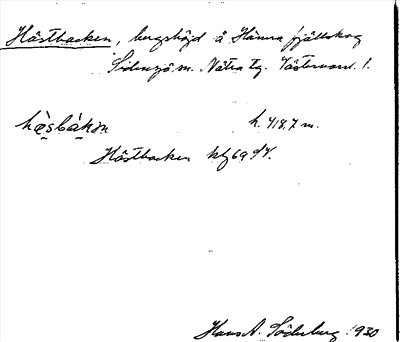 Hästbacken, bergshöjd å Hämra fjällskog
Sidensjö sn. Nätra tg. Västernorrl. l.
hæ̀sbákɷn h. 418,7 m.
Hästbacken ktbl 69 SV.
Hans A. Söderberg 1930